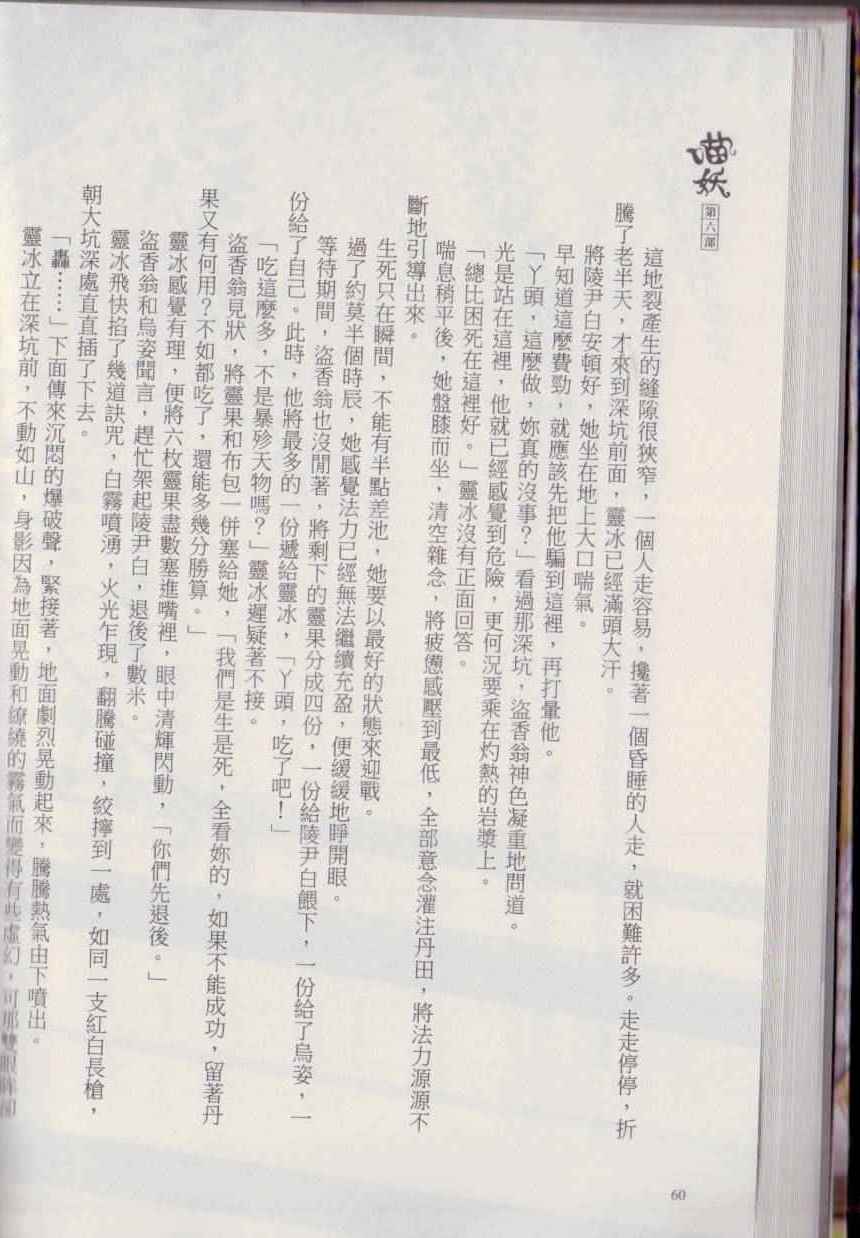 喵妖
第六部
這地裂產生的縫隙很狹窄，一個人走容易，攙著一個昏睡的人走，就困難許多。走走停停，折
騰了老半天，才來到深坑前面，靈冰已經滿頭大汗。
將陵尹白安頓好，她坐在地上大口喘氣。
早知道這麼費勁，就應該先把他騙到這裡，再打暈他。
「丫頭，這麼做，妳真的沒事？」看過那深坑，盜香翁神色凝重地問道。
光是站在這裡，他就已經感覺到危險，更何況要乘在灼熱的岩漿上。
「總比困死在這裡好。」靈冰沒有正面回答。
喘息稍平後，她盤膝而坐，清空雜念，將疲憊感壓到最低，全部意念灌注丹田，將法力源源不
斷地引導出來。
生死只在瞬間，不能有半點差池，她要以最好的狀態來迎戰。
過了約莫半個時辰，她感覺法力已經無法繼續充盈，便緩緩地睜開眼。
等待期間，盜香翁也沒閒著，將剩下的靈果分成四份，一份給陵尹白餵下，一份給了烏姿，一
份給了自己。此時，他將最多的一份遞給靈冰，「丫頭，吃了吧！」
「吃這麼多，不是暴殄天物嗎？」靈冰遲疑著不接。
盜香翁見狀，將靈果和布包一併塞給她，「我們是生是死，全看妳的，如果不能成功，留著丹
果又有何用？不如都吃了，還能多幾分勝算。」
靈冰感覺有理，便將六枚靈果盡數塞進嘴裡，眼中清輝閃動，「你們先退後。」
盜香翁和烏姿聞言，趕忙架起陵尹白，退後了數米。
靈冰飛快掐了幾道訣咒，白霧噴湧，火光乍現，翻騰碰撞，絞擰到一處，如同一支紅白長槍，
朝大坑深處直直插了下去。
「轟……」下面傳來沉悶的爆破聲，緊接著，地面劇烈晃動起來，騰騰熱氣由下噴出。
靈冰立在深坑前，不動如山，身影因為地面晃動和繚繞的霧氣而變得有些虛幻，可那雙眼
60